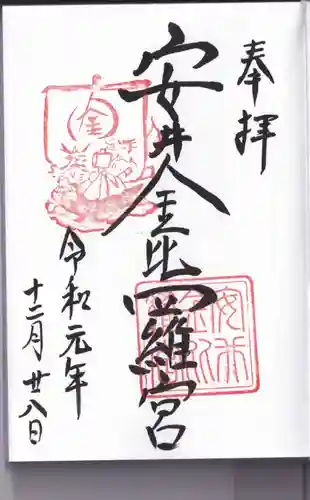 奉拝
安井金比羅宮
令和元年
十二月廿八日
金